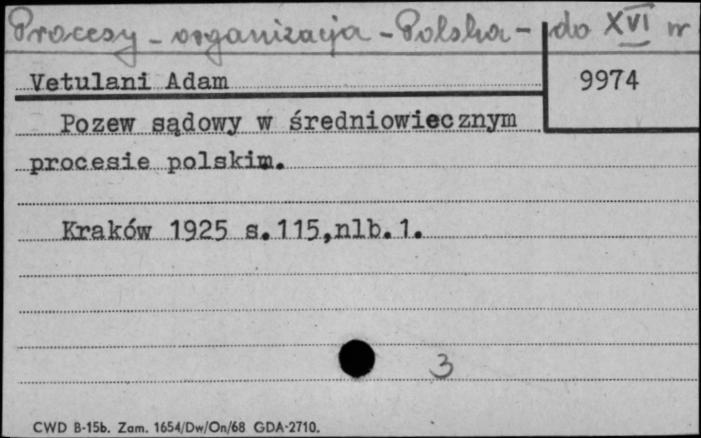 Procesy - organizacja - Polska - do XVI w
Vetulani Adam 9974
Pozew sądowy w średniowiecznym
procesie polskim.
Kraków 1925 s.115,nlb.1.
3
CWD B-15b. Zam. 1654/Dw/On/68 GDA-2710.